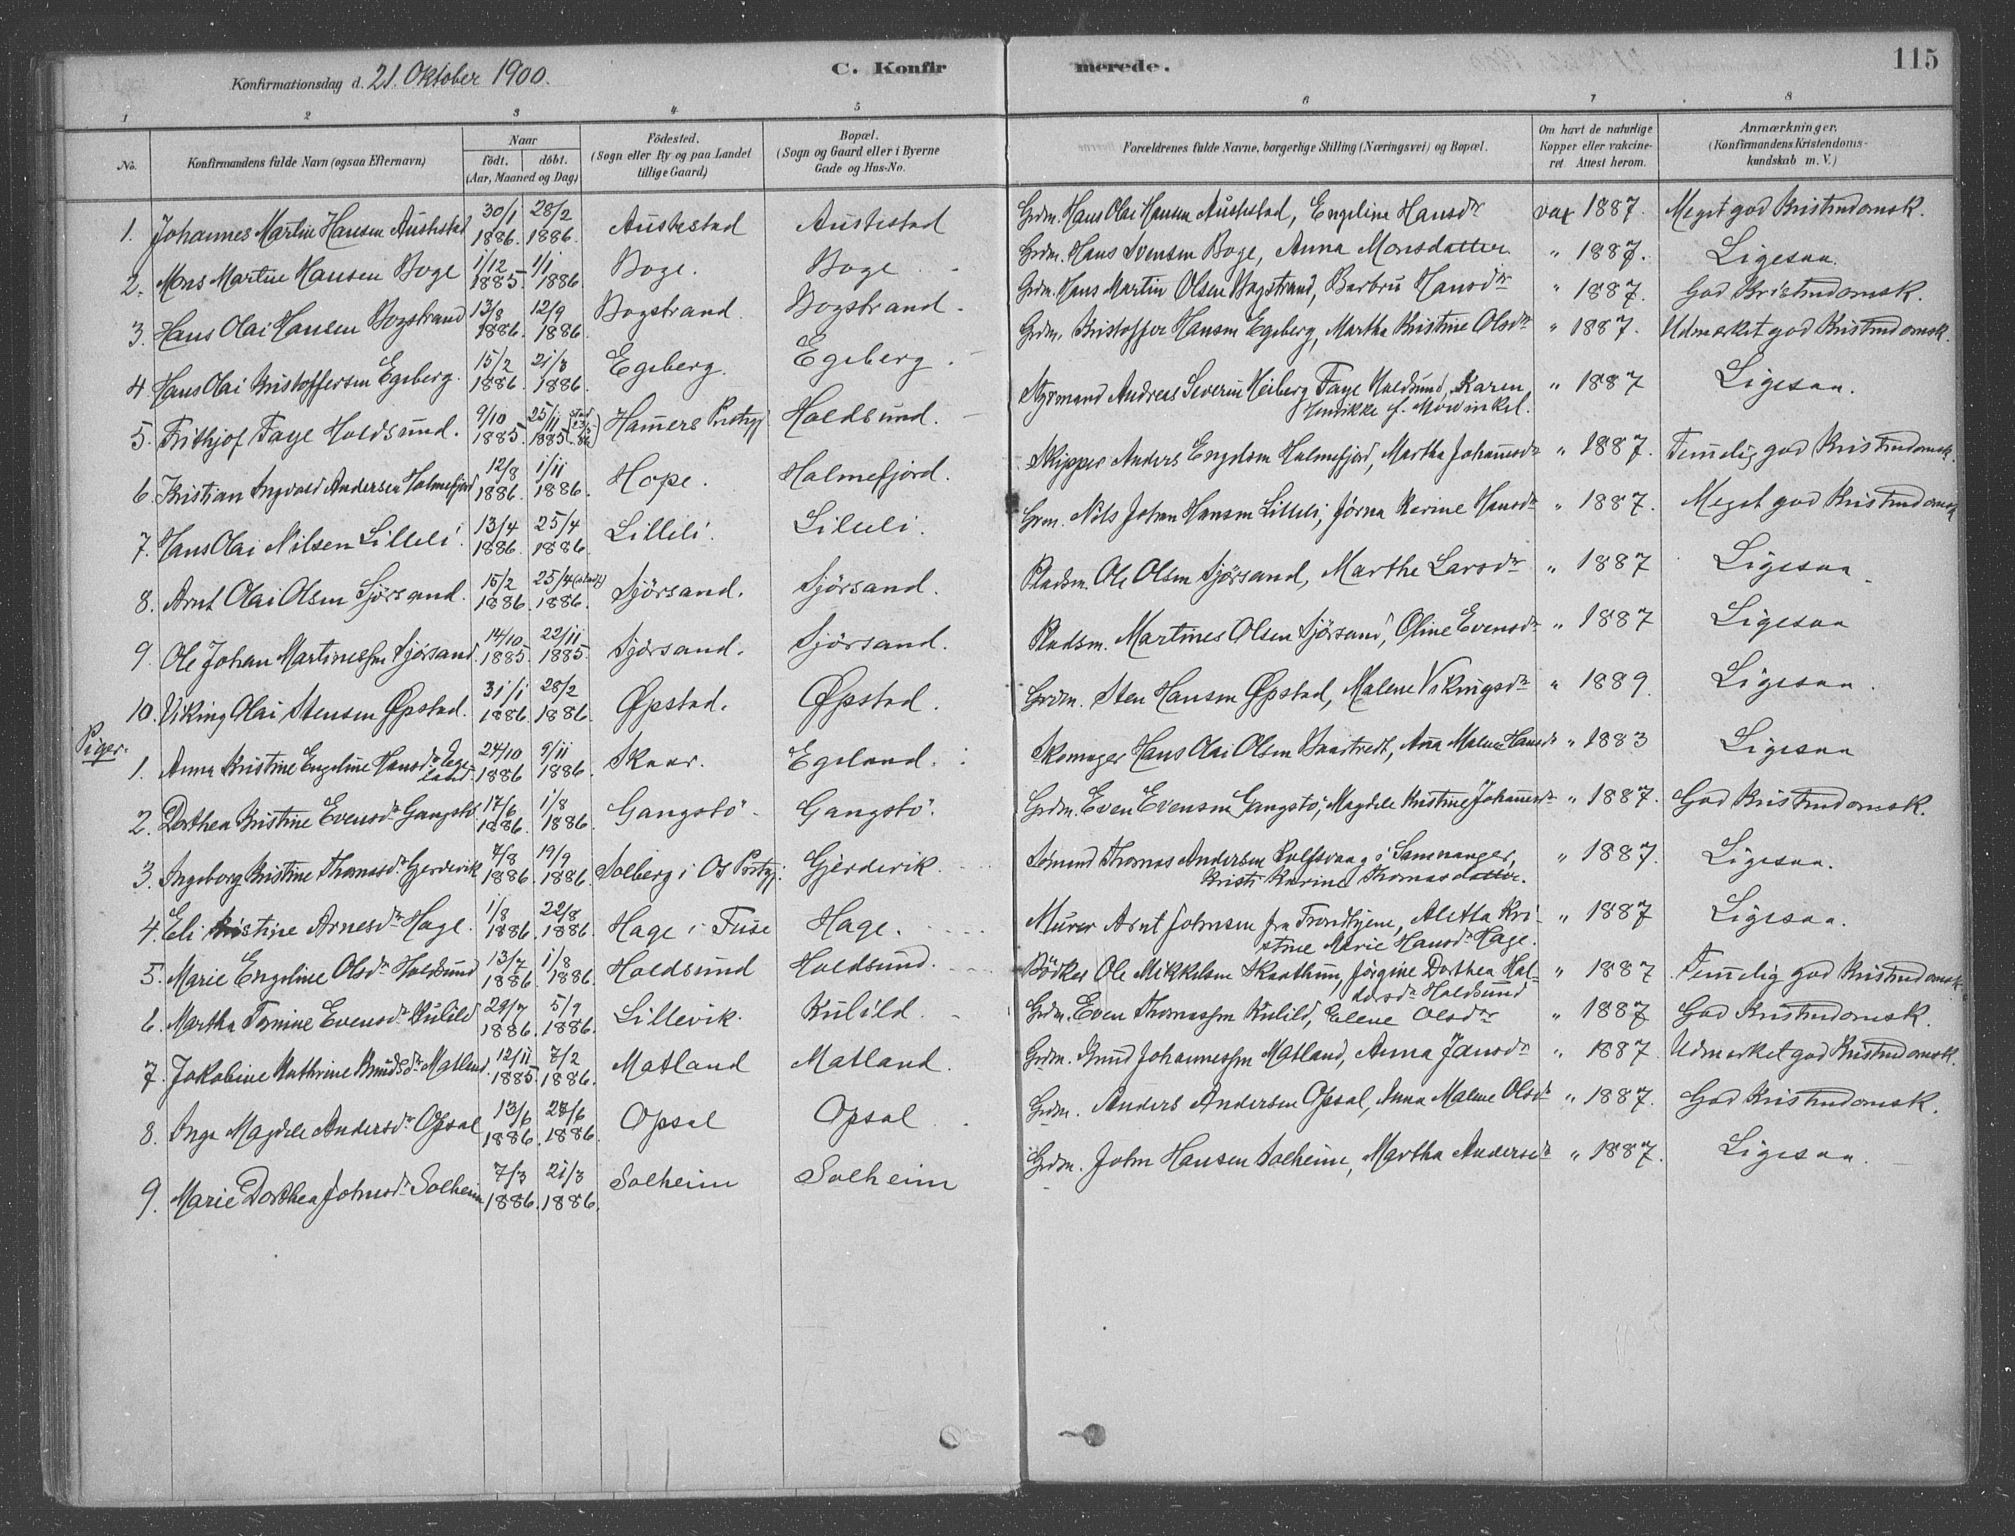 Konfirmationsdag d. 21. Oktober 1900.
C. Konfir
merede.
115
1 2 3 4 5 6 7 8
No.
Konfirmandens fulde Navn (ogsaa Efternavn)
Naar
födt. döbt.
(Aar, Maaned og Dag)
Födested.
(Sogn eller By og paa Landet
tillige Gaard)
Bopæl.
(Sogn og Gaard eller i Byerne
Gade og Hus-No.
Forældrenes fulde Navne, borgerlige Stilling (Næringsvei) og Bopæl.
Om havt de naturlige
Kopper eller vakcine-
ret. Attest herom.
Anmærkninger.
(Konfirmandens Kristendoms-
kundskab m. V.)
1. Johannes Martin Hansen Austestad 30/1 1886. 28/2 1886. Austestad Austestad Grdm. Hans Olai Hansen Austestad, Engeline Hansdr vax 1887. Meget god Kristendomsk.
2. Mons Martin Hansen Boge 1/12 1885. 1/1 1886 Boge. Boge Grdm. Hans Svensen Boge, Anna Monsdatter " 1887. Ligesaa.
3. Hans Olai Hansen Bogstrand 13/8 1886. 12/9 1886. Bogstrand. Bogstrand. Grdm. Hans Martin Olsen Bogstrand, Barbru Hansdr " 1887. God Kristendomsk.
4 Hans Olai Kristoffersen Egeberg. 15/2 1886. 21/3 1886. Egeberg. Egeberg. Grdm. Kristoffer Hansen Egeberg, Martha Kristine Olsdr " 1887. Udmerket god Kristendomsk.
5. Frithjof Faye Holdsund. 9/10 1885. 25/11 1885. Hamers Prstgj Holdsund. Andreas Severin Heiberg Faye Holdsund, Karen
Henrikke f. Mowinkel. " 1887 Ligesaa.
6. Kristian Ingvald Andersen Holmefjord 12/8 1886. 1/11 1886. Hope. Holmefjord. Skipper Anders Engelsen Holmefjord, Martha Johannesdr " 1887. Temelig god Kristendomsk.
7. Hans Olai Nilsen Lilleli 13/4 1886. 25/4 1886. Lilleli. Lilleli. Grm. Nils Johan Hansen Lilleli, Jörna Karine Hansdr " 1887. Meget god Kristendomsk
8. Arnt Olai Olsen Sjörsand. 15/2 1886. 25/4 1886. Sjörsand. Sjörsand. Pladsm. Ole Olsen Sjörsand, Marthe Larsdr " 1887 Ligesaa
9. Ole Johan Martinessen Sjörsand 14/10 1885. 22/11 1885. Sjörsand. Sjörsand. Pladsm. Martines Olsen Sjörsand, Oline Evensdr " 1887 Ligesaa
10. Viking Olai Stensen Øpstad. 31/1 1886. 28/2 1886. Øpstad. Øpstad. Grdm. Sten Hansen Øpstad, Malene Vikingsdr " 1889. Ligesaa.
Piger.
1. Anna Kristine Engeline Hansdr Ege-
land 24/10 1886 9/11 1886. Skaar. Egeland. Skomager Hans Olai Olsen, Ana Malene Hansdr " 1883 Ligesaa
2. Dorthea Kristine Evensdr Gangstö 17/6 1886. 1/8 1886. Gangstö Gangstö. Grdm. Even Evensen Gangstö, Magdele Kristine Johannesdr " 1887. God Kristendomsk.
3. Ingeborg Kristine Thomasdr Gjerdevik 7/8 1886. 19/9 1886. Solberg i Os Prstgj. Gjerdevik. Sömand Thomas Andersen Rolfsvaag i Samnanger,
Kristi Karine Thomasdatter. " 1887. Ligesaa.
4. Eli Kristine Arnesdr Hage. 1/8 1886. 22/8 1886. Hage i Fuse Hage. Murer Arnt Johnsen fra Trondhjem, Aletta Kri-
stine Marie Hansdr Hage. " 1887 Ligesaa.
5. Marie Engeline Olsdr Holdsund 13/7 1886 1/8 1886. Holdsund Holdsund. Bödker Ole Mikkelsen Skaathun, Jörgine Dorthea Hal-
dorsdr Holdsund " 1887 Temelig god Kristendomsk.
6. Martha Tomine Evensdr Kulild 29/7 1886. 5/9 1886. Lillevik. Kulild. Grdm. Even Thomassen Kulild, Elene Olsdr " 1887 God Kristendomsk.
7. Jakobine Kathrine Knudsdr Matland. 12/11 1885. 7/2 1886. Matland Matland. Grdm. Knud Johannessen Matland, Anna Jansdr " 1887. Udmerket god Kristendomsk.
8. Inga Magdele Andersdr Opsal 13/6 1886. 1886. Opsal Opsal Grdm. Anders Andersen Opsal, Anna Malene Olsdr " 1887. God Kristendomsk.
9. Marie Dorthea Johnsdr Solheim 7/3 1886. 21/3 1886. Solheim Solheim Grdm. John Hansen Solheim, Martha Andersdr " 1887. Ligesaa.